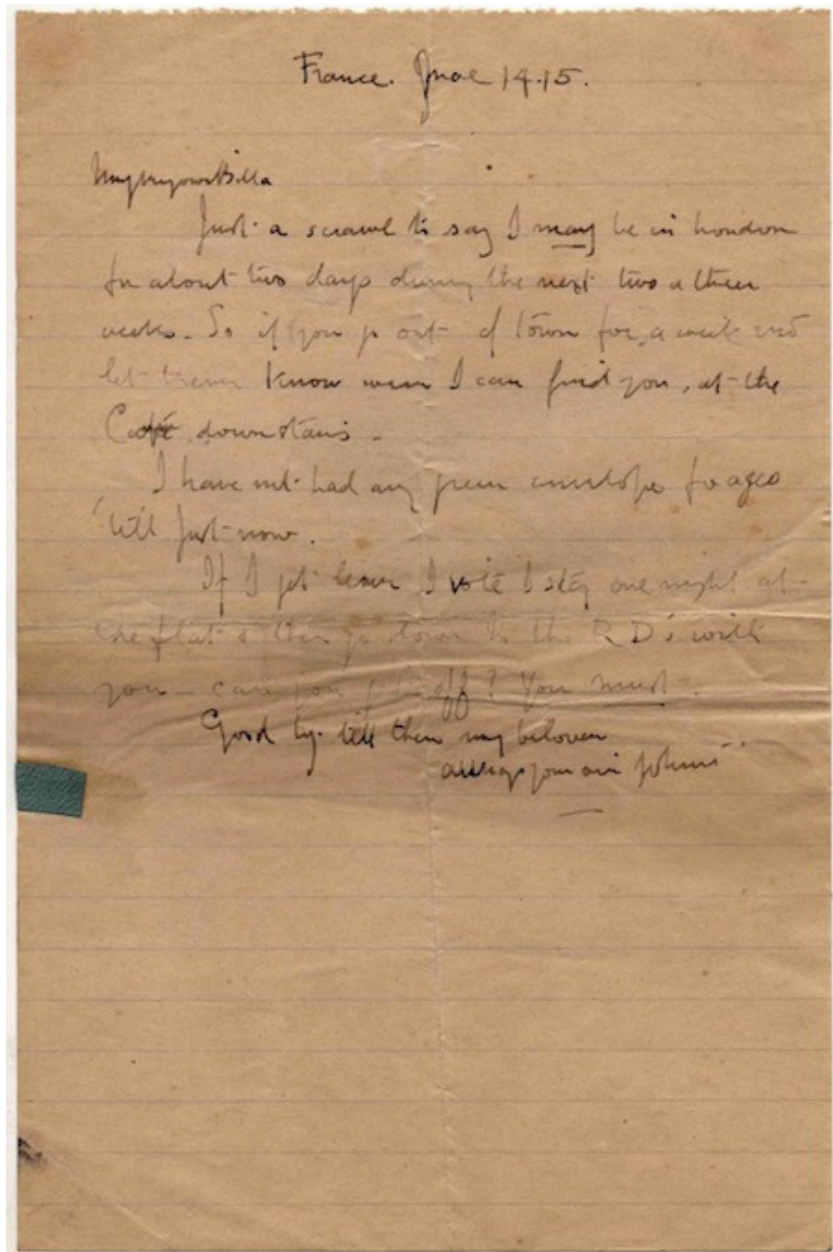 France. June 14.15.
My very own Billa
Just a scrawl to say I may be in London
for about two days during the next two or three
weeks. So if you go out of town for a week end
let them know where I can find you, at the
Café downstairs.
I have not had any green envelopes for ages
'till just now.
If I get leave I vote I stay one night at
the flat & then go down to the R D's with
you can you get off? You must.
Good by. till then my beloved
always your own Johnnie